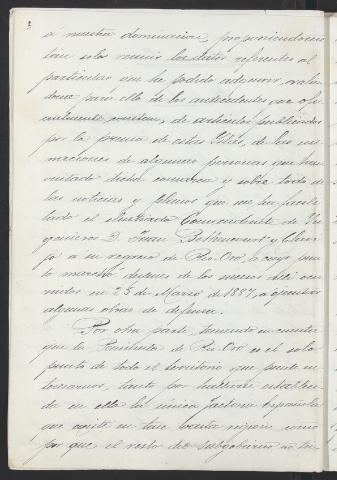 3
á nuestra dominacion, proponiendome
tan solo reunir los datos referentes al
particular que he podido adquirir, valien
dome para ello de los antecedentes que ofi
cialmente existen, de articulos publicados
por la prensa de estas Islas, de las in
maciones de algunas personas que han
visitado dicha comarca y sobre todo de
las noticias y planos que me ha facili
tado el ilustrado Comandante de In
genieros D. Juan Bethencourt y Clavi
jo á su regreso de Rio-Oro, á cuyo pun
to marchó despues de los sucesos allí ocu
rridos en 25 de Marzo de 1887, á ejecutar
algunas obras de defensa.
Por otra parte, teniendo en cuenta
que la Peninsula de Rio Oro es el solo
punto de todo el territorio que puede in
teresarnos, tanto por hallarse estableci
da en ella la única factoria Española
que existe en tan vasta region, como
por que, el resto de